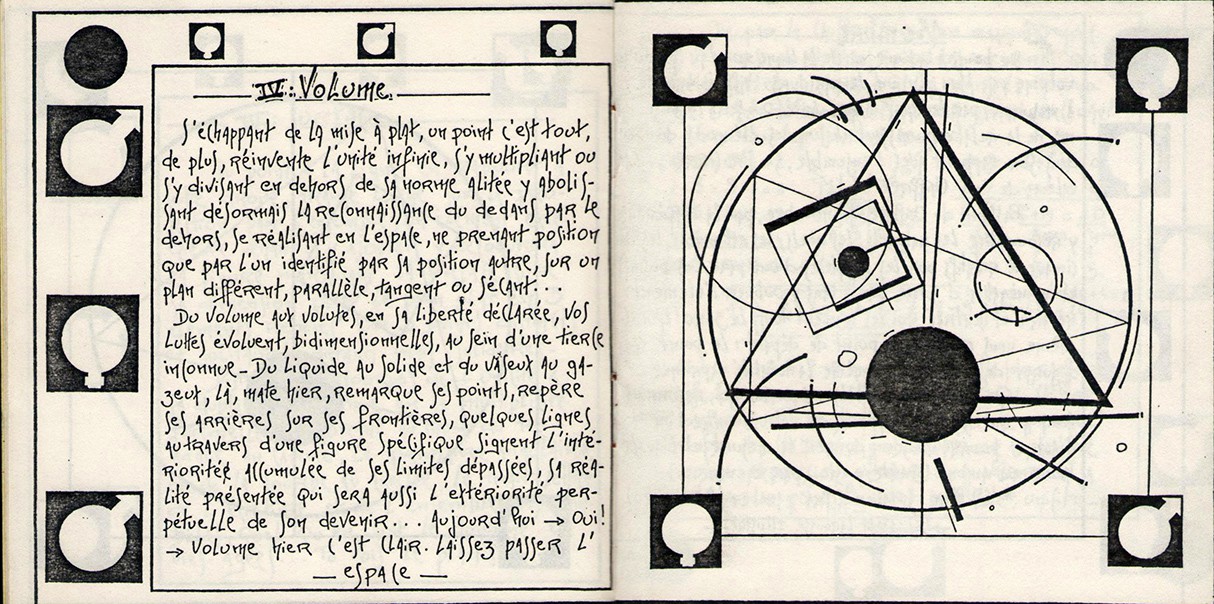 IV: VOLUME.
S'échappant de la mise à plat, un point c'est tout,
de plus, réinvente l'unité infinie, s'y multipliant ou
s'y divisant en dehors de sa norme alitée y abolis-
sant désormais la reconnaissance du dedans par le
dehors, se réalisant en l'espace, ne prenant position
que par l'un identifié par sa position autre, sur un
plan différent, parallèle, tangent ou sécant...
Du volume aux volutes, en sa liberté déclarée, vos
luttes évoluent, bidimensionnelles, au sein d'une tierce
inconnue_ Du liquide au solide et du vaseux au ga-
zeux, là, mate hier, remarque ses points, repère
ses arrières sur ses frontières, quelques lignes
autravers d'une figure spécifique signent l'inté-
riorité accumulée de ses limites dépassées, sa réa-
lité présentée qui sera aussi l'extériorité per-
pétuelle de son devenir... Aujourd'hui → Oui!
→ Volume hier c'est clair. Laissez passer l'
— espace —